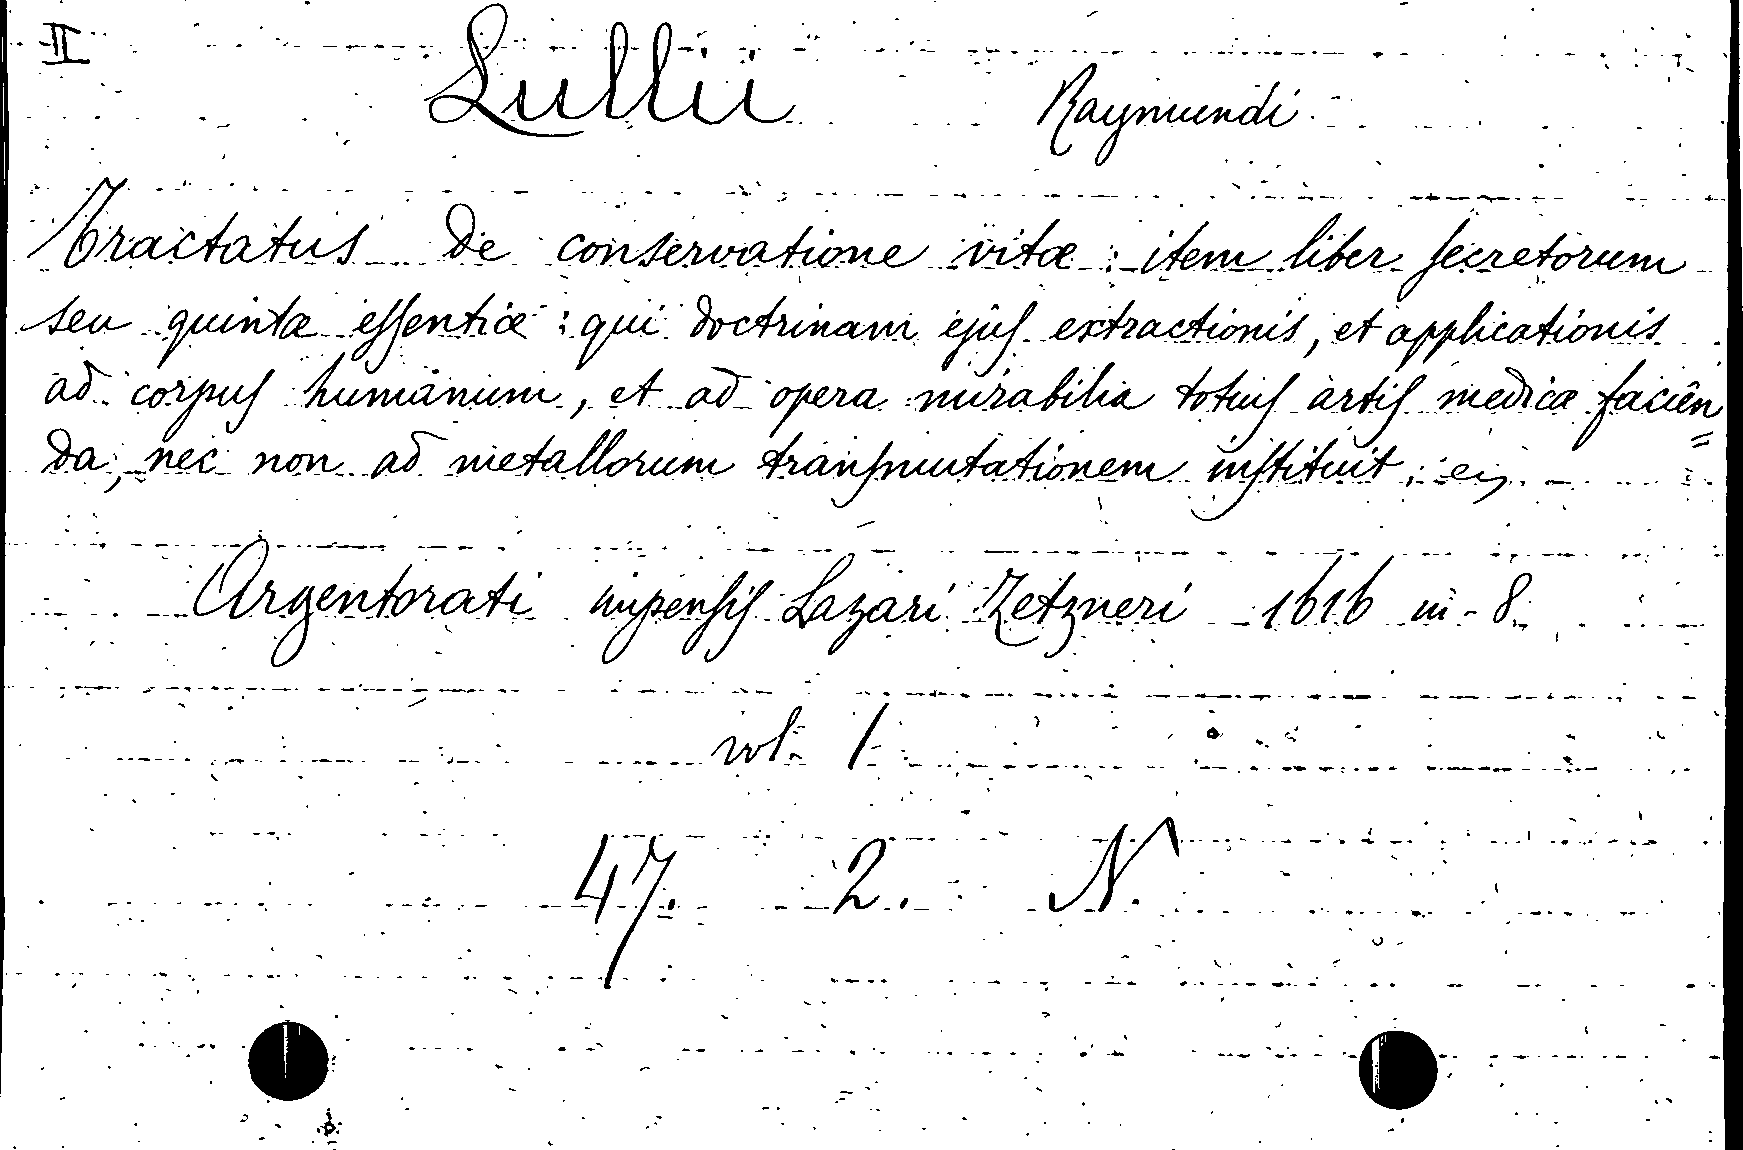 II
Lullii Raymundi
Tractatus de conservatione vitæ : item liber secretorum
seu quintæ essentiæ : qui doctrinam ejus extractionis, et applicationis
ad corpus humanum, et ad opera mirabilia totius artis medicæ facien=
da, nec non ad metallorum transmutationem instituit :
Argentorati impensis Lazari Zetzneri 1616 in-8.
vol. 1
47. 2. N.